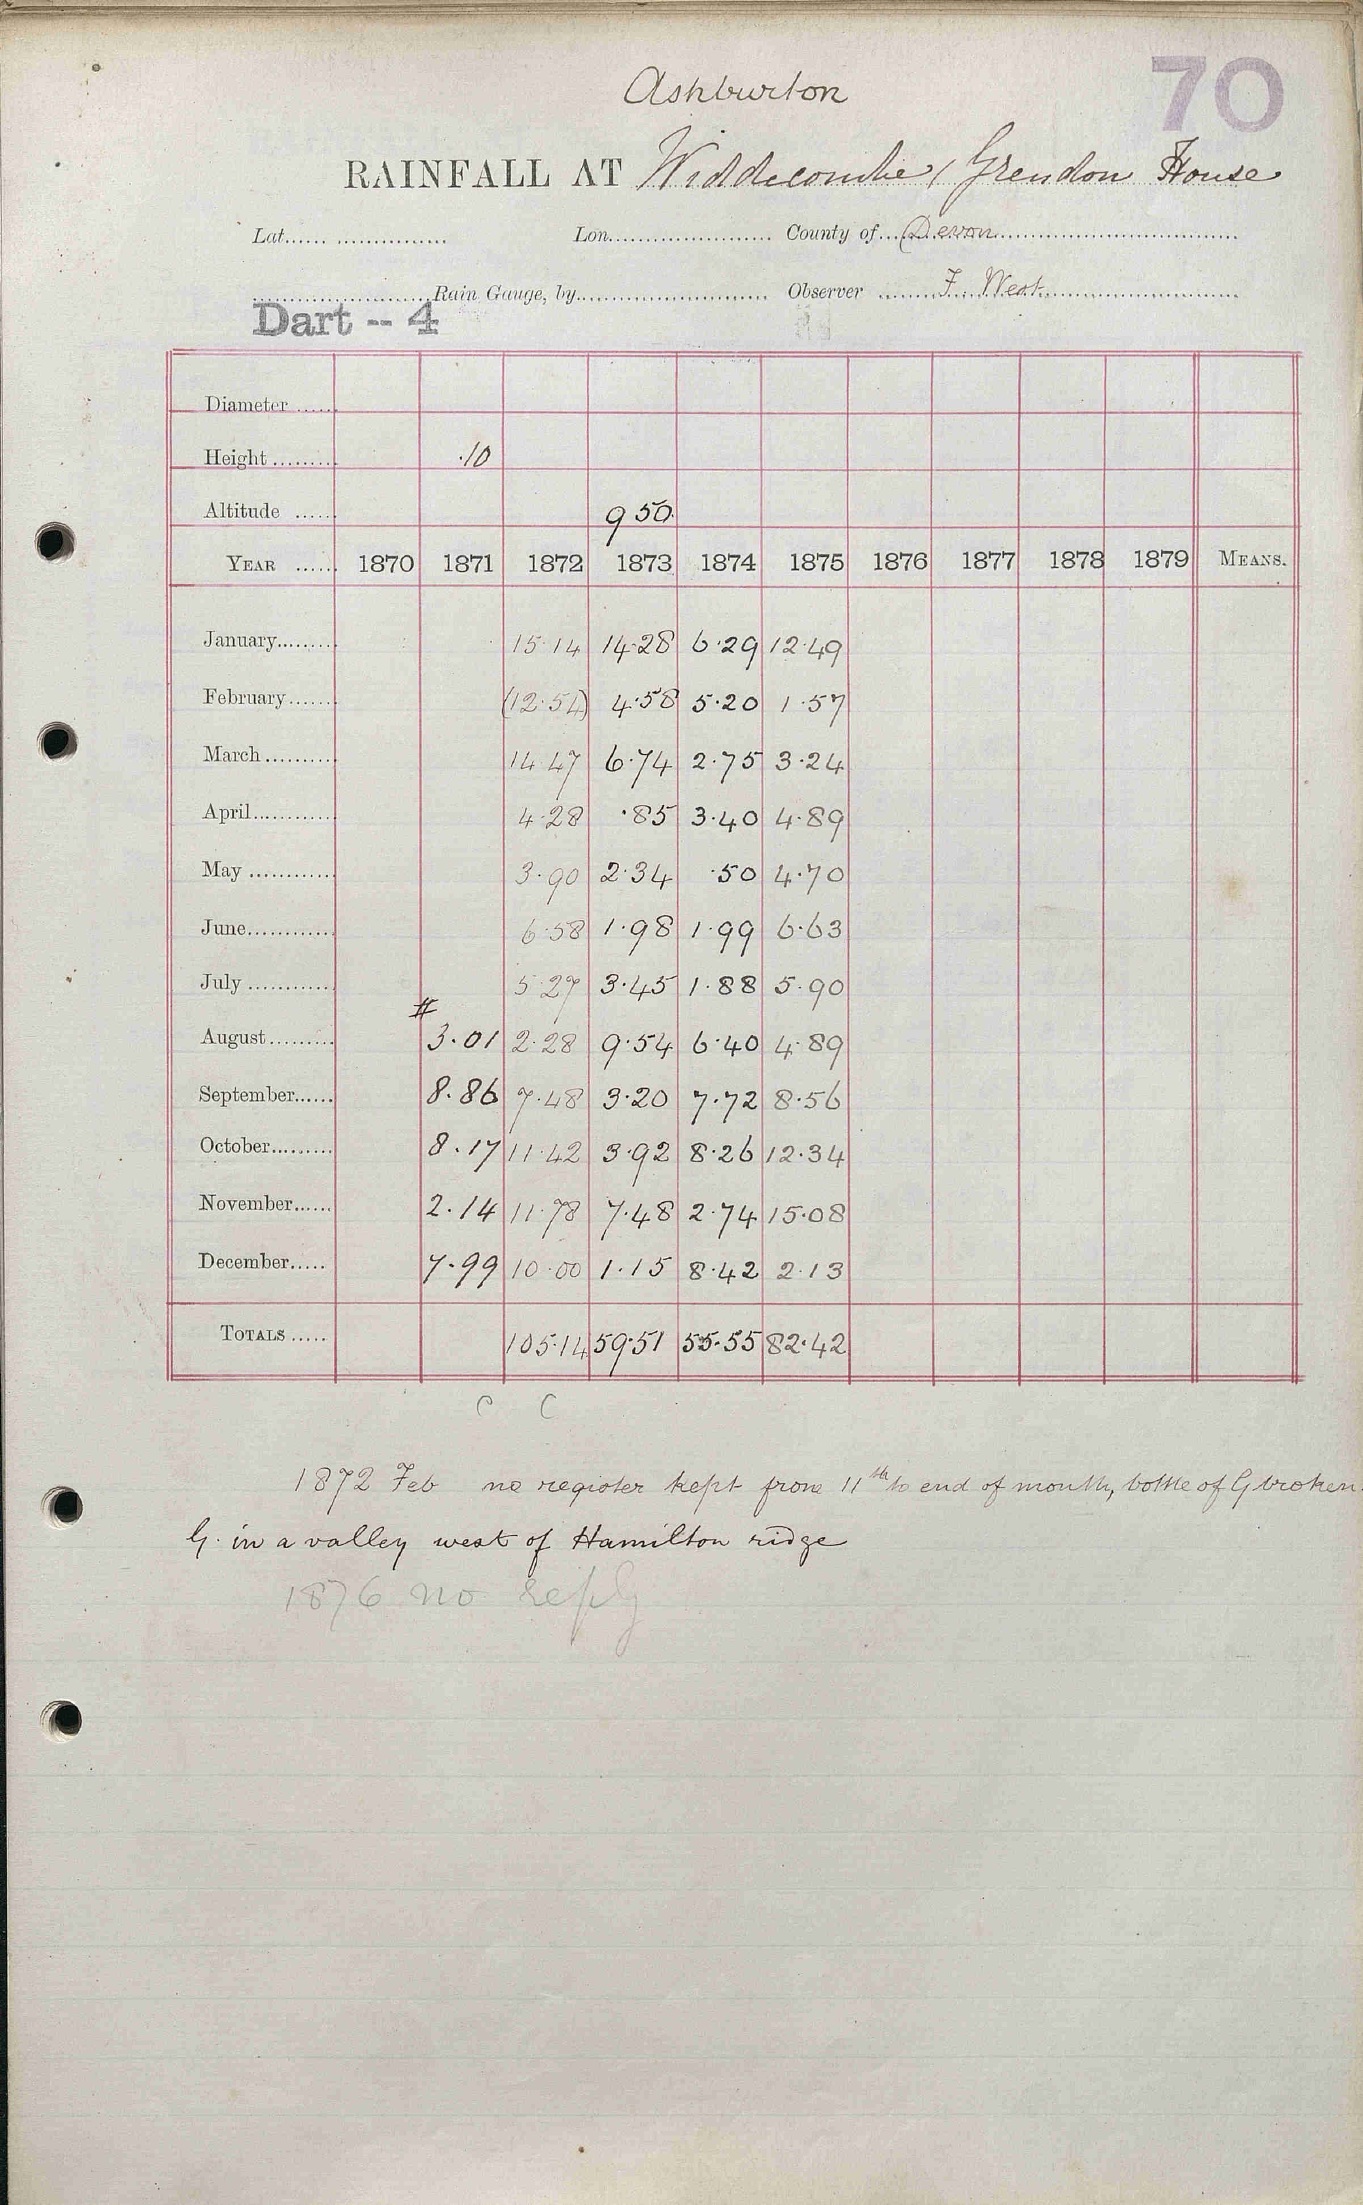 70
Ashburton
RAINFALL AT Widdecombe, Grendon House
Lat. Lon. County of Devon
Rain Gauge, by Observer F. West
Dart -- 4
Diameter
Height .10
Altitude 950
YEAR 1870 1871 1872 1873 1874 1875 1876 1877 1878 1879 MEANS.
January 15.14 14.28 6.29 12.49
February (12.54) 4.58 5.20 1.57
March 14.47 6.74 2.75 3.24
April 4.28 .85 3.40 4.89
May 3.90 2.34 .50 4.70
June 6.58 1.98 1.99 6.63
July 5.27 3.45 1.88 5.90
#
August 3.01 2.28 9.54 6.40 4.89
September 8.86 7.48 3.20 7.72 8.56
October 8.17 11.42 3.92 8.26 12.34
November 2.14 11.78 7.48 2.74 15.08
December 7.99 10.00 1.15 8.42 2.13
TOTALS 105.14 59.51 55.55 82.42
C C
1872 Feb no register kept from 11th to end of month, bottle of G broken.
G. in a valley west of Hamilton ridge
1876 no reply